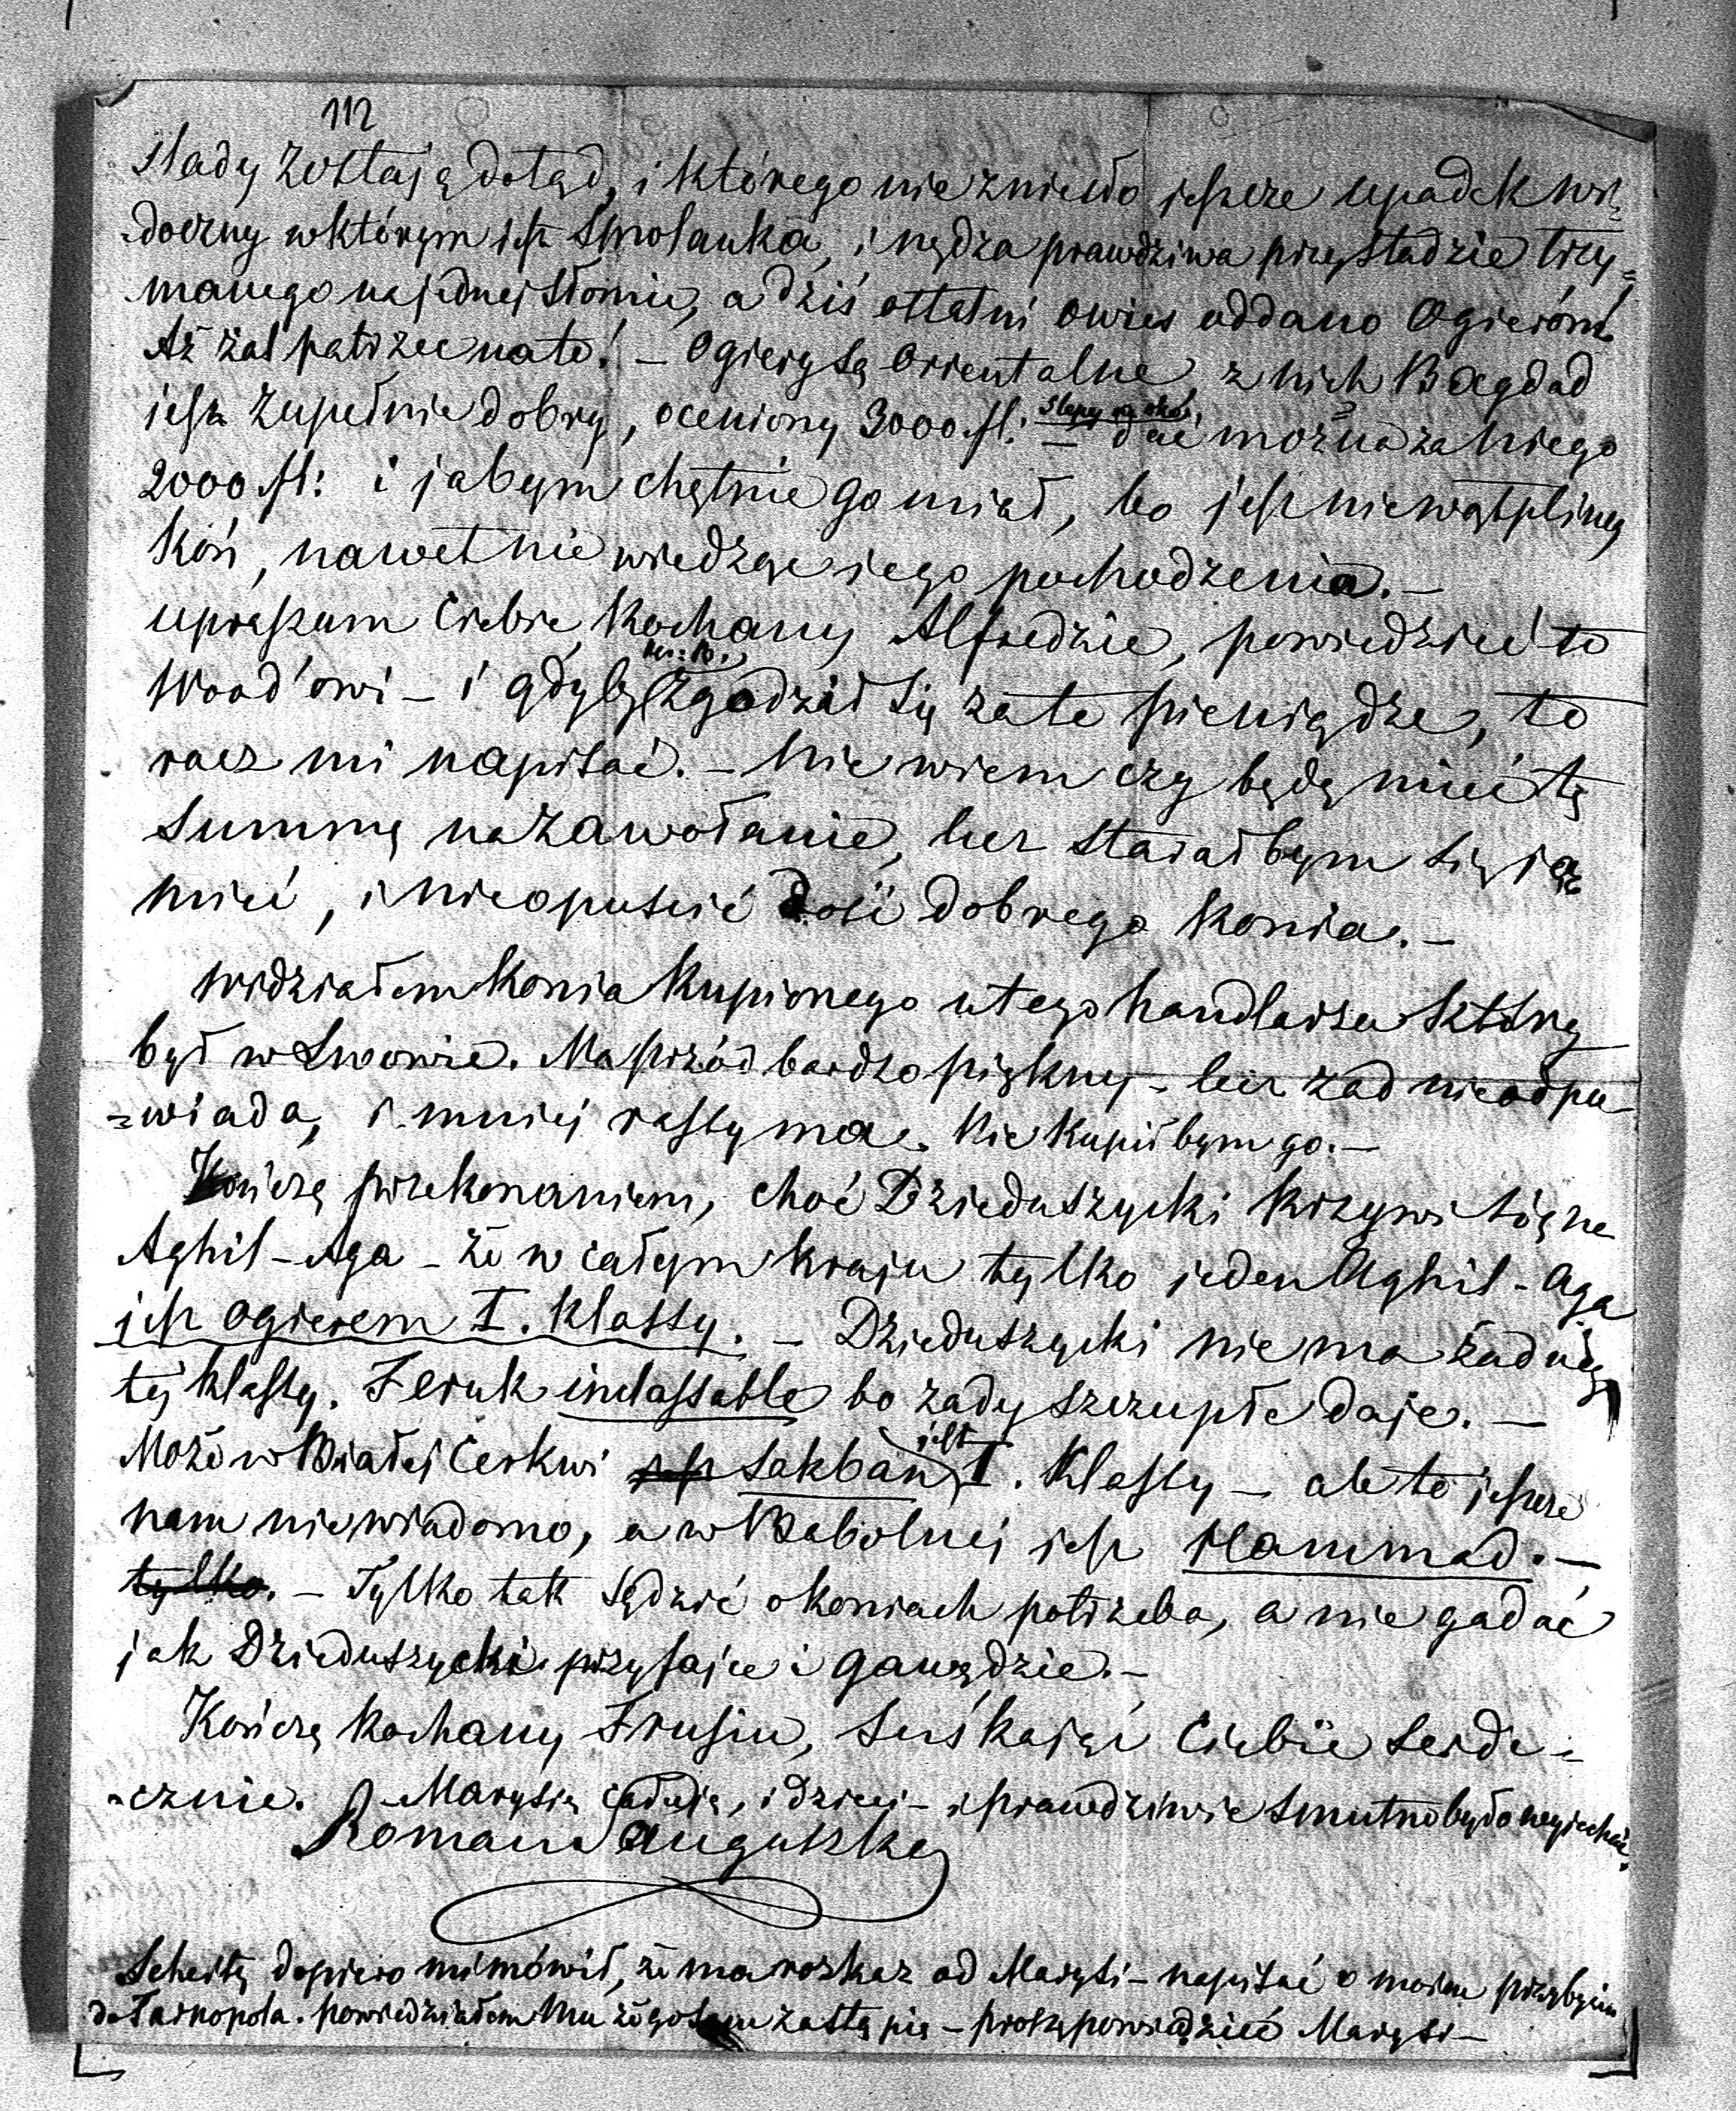 112
slady zostają dotąd, i którego nie zniosło jeszcze upadek wi=
=doczny w którym jest Smolanka, i nędza prawdziwa przy stadzie trzy=
manego na jednej słomie, a dziś ostatni owies oddano Ogierom
Aż żal patrzec na to! – Ogiery są Orientalne, z nich Bagdad
jest zupełnie dobry, oceniony 3000 fl: – slepy na oko, dać można za niego
2000 fl: i jabym chętnie go miał, bo jest niewątpliwy
Koń, nawet nie wiedząc jego pochodzenia. –
upraszam Ciebie, Kochany Alfredzie, powiedzieć to
Wood'owi – i gdyby zgodził się za te pieniądze, to
racz mi napisać. – Nie wiem czy będę mieć tę
Summę na zawołanie, lecz starałbym się ją
mieć, i nieopuscić dość dobrego Konia. –
Widziałem Konia Kupionego u tego handlarza Który
był w Lwowie. Ma przód bardzo piękny – lecz zad nieodpo=
=wiada, i mniej rassy ma. Nie Kupiłbym go. –
Kończę przekonaniem, choć Dzieduszycki krzywi się na
Aghil-Aga – że w całym Kraju tylko jeden Aghil-Aga
jest ogierem I. Klassy. – Dzieduszycki nie ma żadnego
téj klassy. Feruk inclassable bo zady szczupłe daje. –
Może w Białej Cerkwi jest Sakban jest I. Klassy – ale to jeszcze
nam niewiadomo, a w Babolnej jest Hammad. –
tylko. – Tylko tak sądzić o koniach potrzeba, a nie gadać
jak Dzieduszycki przy fajce i gawędzie. –
Kończę Kochany Frusiu, sciskając Ciebie serde=
=cznie. Marysię całuję, i dzieci – i prawdziwie smutno było wyjechać.
Roman Sanguszko
Scheitz dopiero mi mówił, że ma rozkaz od Marysi – napisać o moim przybyciu
do Tarnopola. powiedziałem Mu że go sam zastąpię – proszę powiedzieć Marysi –